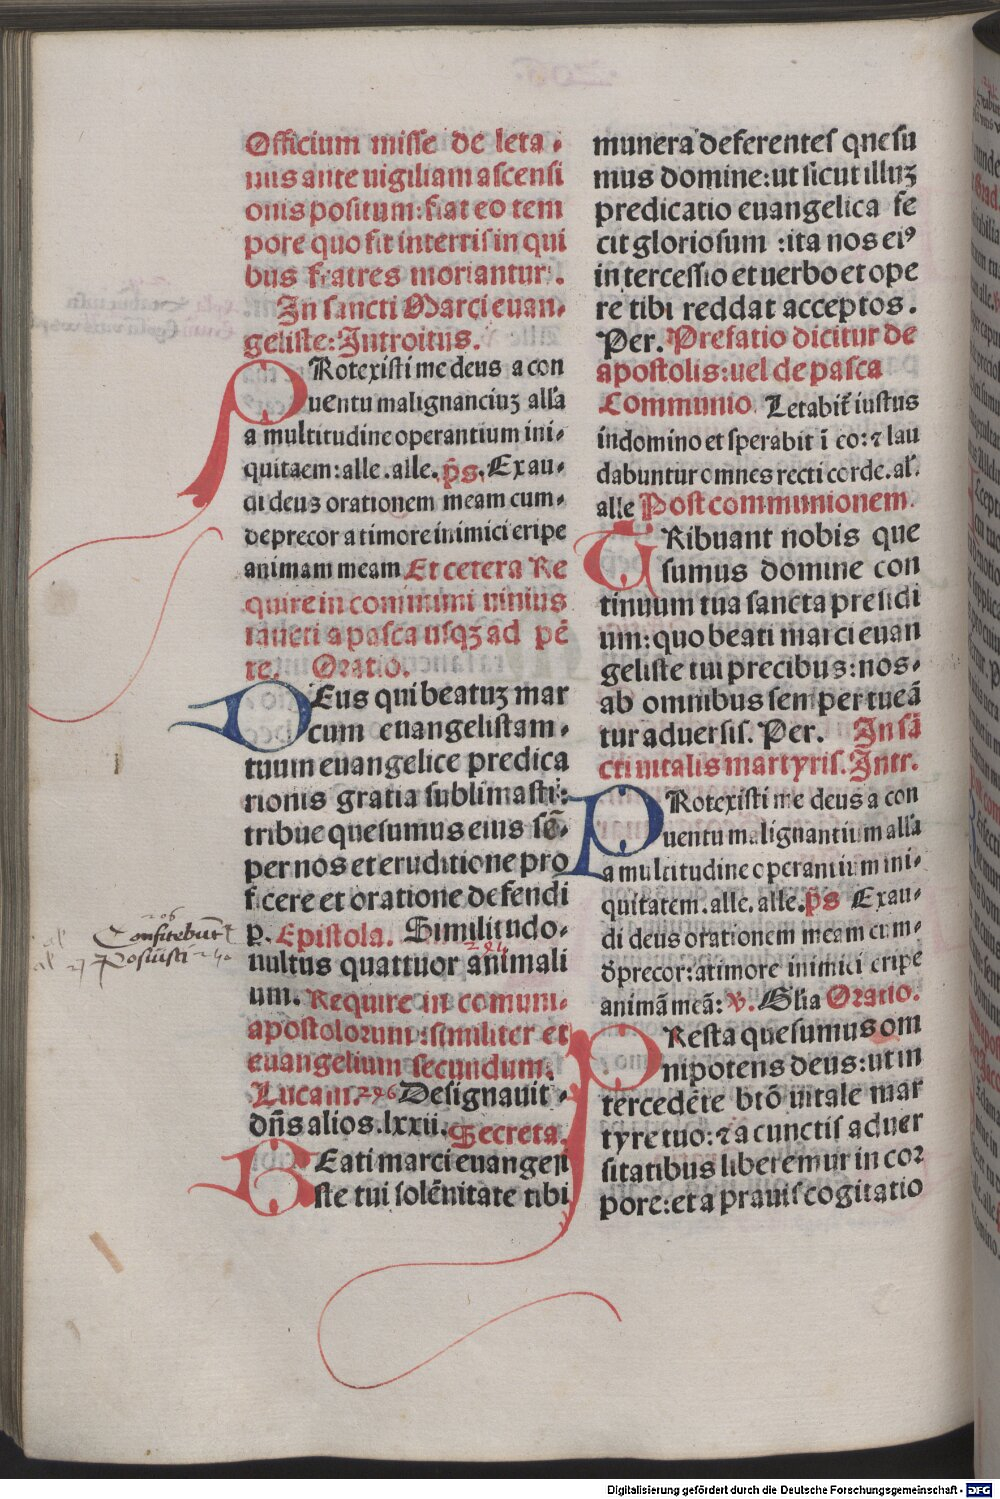 Officium misse de leta-
niis ante uigiliam ascensi
onis positum: fiat eo tem
pore quo fit interris in qui
bus fratres moriantur.
In sancti Marci euan-
geliste: Introitus.
PRotexisti me deus a con
uentu malignanciuꝫ alla
a multitudine operantium ini-
quitaem: alle. alle. p̄s. Exau-
di deus orationem meam cum-
deprecor a timore inimici eripe
animam meam Et cetera Re
quire in communi unius
sancti a pasca usqꝫ ad pē
te. Oratio.
DEus qui beatuꝫ mar
cum euangelistam-
tuum euangelice predica
tionis gratia sublimasti:
tribue quesumus eius sē-
per nos et eruditione pro
ficere et oratione defendi
p. Epistola. Similitudo-
uultus quattuor animali
um. Require in comuni-
apostolorum: similiter et
euangelium secundum.
Lucam. 296 Designauit-
dn̄s alios .lxxii. Secreta.
BEati marci euangeli
ste tui solēnitate tibi
Confitebunt 206
Posuisti
munera deferentes quesu
mus domine: ut sicut illuꝫ
predicatio euangelica fe
cit gloriosum : ita nos eiꝰ
intercessio et uerbo et ope
re tibi reddat acceptos.
Per. Prefatio dicitur de
apostolis: uel de pasca
Communio. Letabit̄ iustus
in domino et sperabit ī eo: ⁊ lau
dabuntur omnes recti corde. al̄.
alle Post communionem.
TRibuant nobis que
sumus domine con
tinuum tua sancta presidi
um: quo beati marci euan
geliste tui precibus: nos-
ab omnibus semper tueā
tur aduersis. Per. In sā
cti uitalis martyris. Intr.
PRotexisti me deus a con
uentu malignantium alla
a multitudine operantium ini-
quitatem. alle. alle. p̄s Exau-
di deus orationem meam cum-
dp̄recor: atimore inimici eripe
animā meā: V. Gl̄ia Oratio.
PResta quesumus om
nipotens deus: ut in
tercedēte btō uitale mar
tyre tuo: ⁊ a cunctis aduer
sitatibus liberemur in coꝛ
pore: et a prauis cogitatio
Digitalisierung gefördert durch die Deutsche Forschungsgemeinschaft - DFG